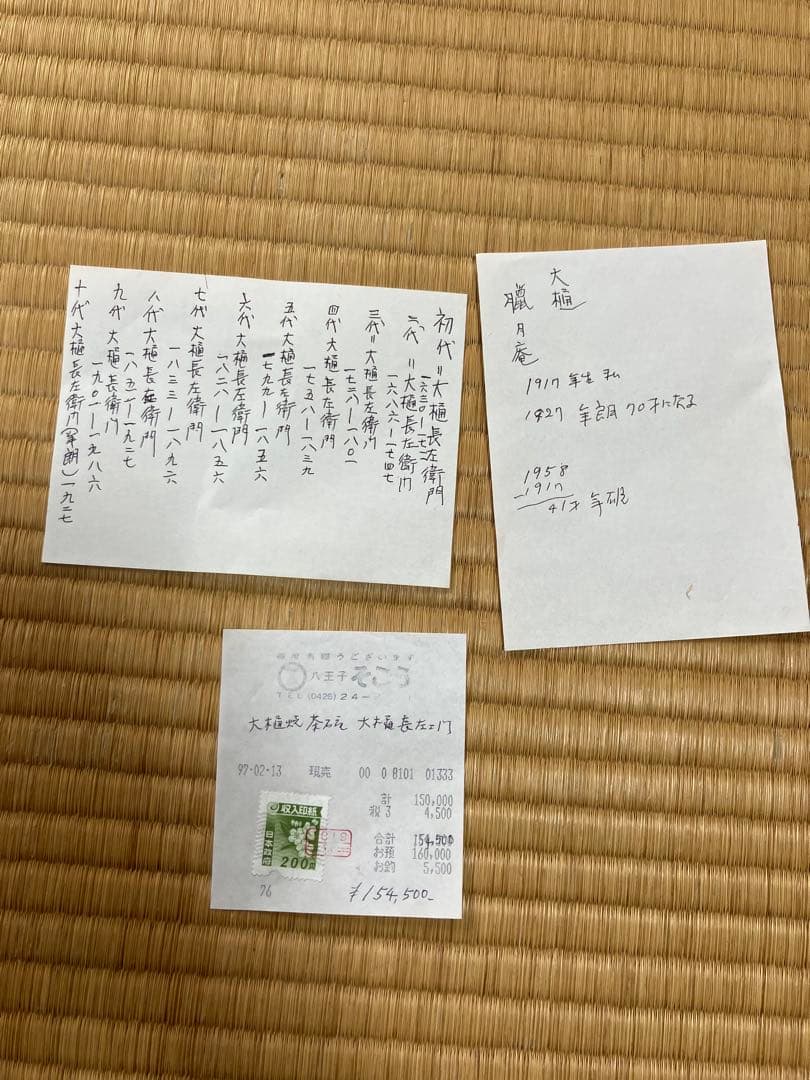 初代〃大樋長左衛門
一六三〇ー一七一二
二代〃大樋長左衛門
一六八六ー一七四七
三代〃大樋長左衛門
一七二八ー一八〇二
四代 大樋長左衛門
一七五八ー一八三九
五代 大樋長左衛門
一七九九ー一八五六
六代 大樋長左衛門
一八二八ー一八五六
七代 大樋長左衛門
一八三三ー一八九六
八代 大樋長左衛門
一八五一ー一九二七
九代 大樋長衛門
一九〇一ー一九八六
十代 大樋長左衛門(年朗)一九二七
大樋
朧月庵
1917 年生 私
1927 年朗 70才になる
1958
-1917
41才 年砡
毎度有難うございます
八王子 そごう
TEL (0426) 24-
大樋焼 茶碗 大樋長左エ門
97-02-13 現売 00 0 8101 01333
計 150,000
税3 4,500
合計 154,500
お預 160,000
お釣 5,500
収入印紙
日本政府
200円
76 ¥154,500-